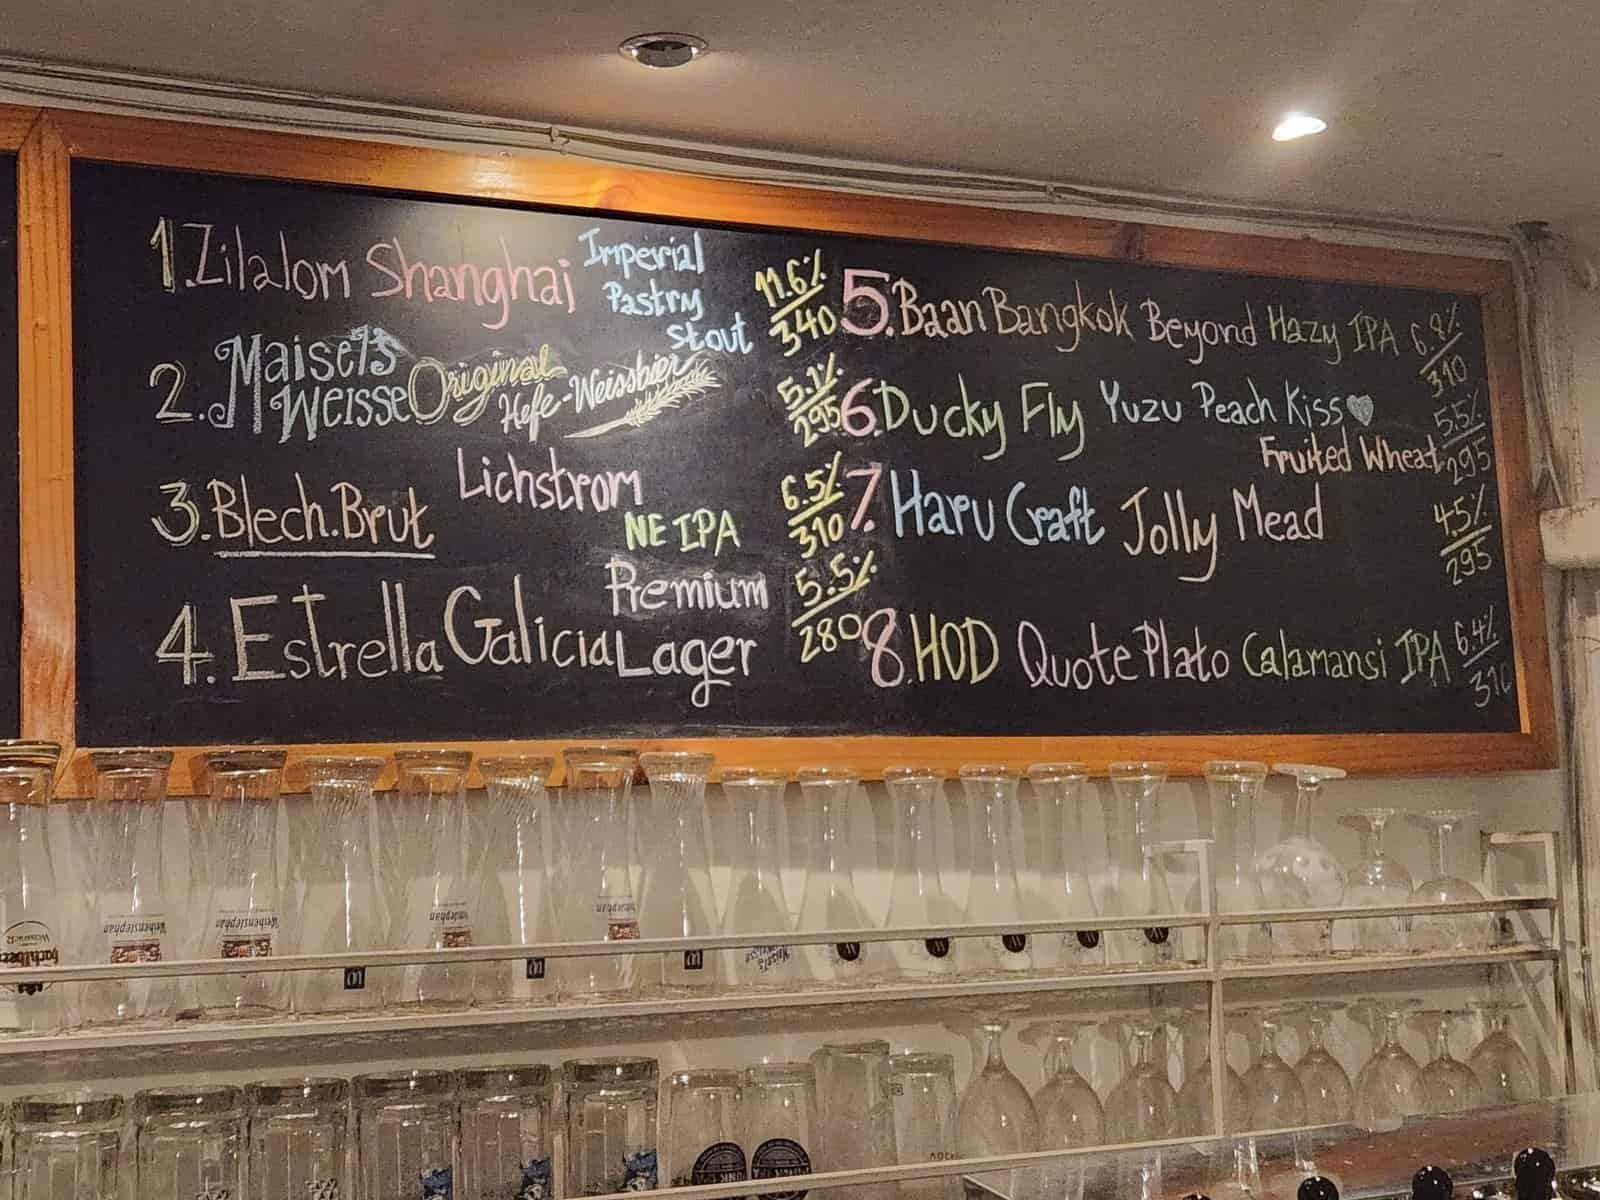 1. Zilalom Shanghai Imperial Pastry Stout 11.6% 340
2. Maisel's Weisse Original Hefe-Weissbier 5.1% 295
3. Blech.Brut Lichstrom NE IPA 6.5% 310
4. Estrella Galicia Premium Lager 5.5% 280
5. Baan Bangkok Beyond Hazy IPA 6.8% 310
6. Ducky Fly Yuzu Peach Kiss Fruited Wheat 5.5% 295
7. Haru Craft Jolly Mead 4.5% 295
8. HOD Quote Plato Calamansi IPA 6.4% 310
Weihenstephan
Weihenstephan
Maisel's Weisse